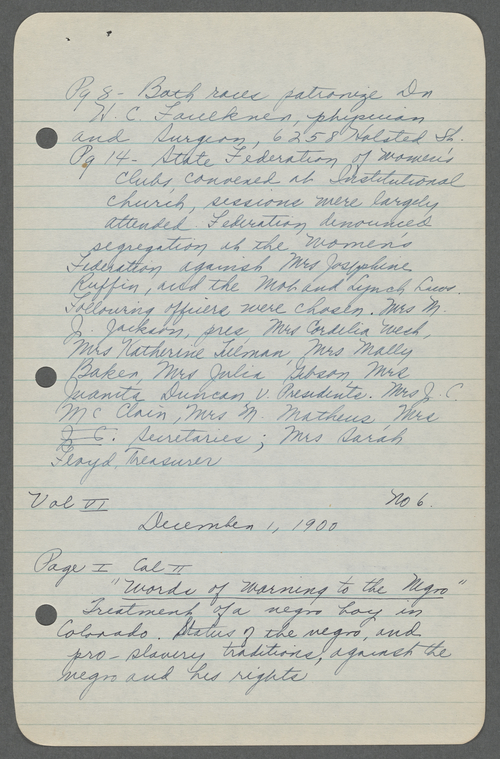 Pg 8 - Both races patronize Dr
H. C. Faulkner, physician
and Surgeon, 6258 Halsted St.
Pg 14 - State Federation of Women's
Clubs, convened at Institutional
Church, sessions were largely
attended. Federation denounced
segregation at the Womens
Federation against Mrs Josephine
Ruffin, and the Mob and Lynch Laws.
Following officers were chosen. Mrs M.
J. Jackson, pres Mrs Cordelia West,
Mrs Katherine Tilman, Mrs Molly
Baker, Mrs Julia Gibson, Mrs
Juanita Duncan V. Presidents. Mrs J. C.
McClain, Mrs M. Matheus, Mrs
J. C. Secretaries; Mrs Sarah
Floyd, Treasurer
Vol VI No 6.
December 1, 1900
Page I Col II
"Words of Warning to the Negro"
Treatment of a negro boy in
Colorado. Status of the negro, and
pro-slavery traditions, against the
negro and his rights